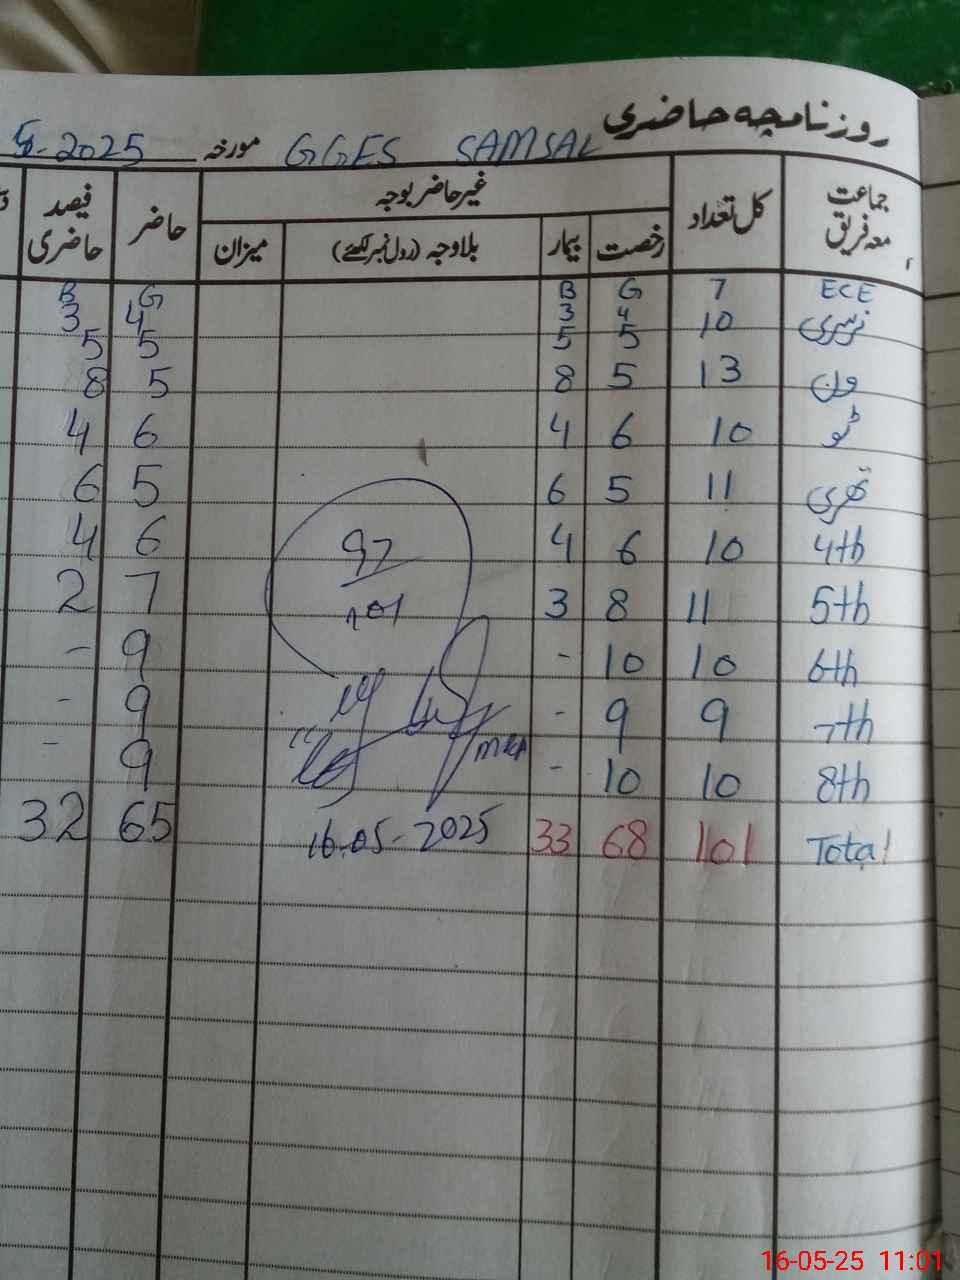 روزنامچہ حاضری
GGES SAMSAL مورخہ 5-2025
جماعت معہ فریق کل تعداد غیر حاضر بوجہ حاضر فیصد حاضری
رخصت بیمار بلاوجہ (رول نمبر لکھئے) میزان
ECE 7 G B G B
4 3 4 3
نرسری 10 5 5 5 5
ون 13 5 8 5 8
ٹو 10 6 4 6 4
تھری 11 5 6 5 6
4th 10 6 4 6 4
97
5th 11 8 3 7 2
101
6th 10 10 - 9 -
7th 9 9 - 9 -
8th 10 10 - 9 -
Total 101 68 33 16.05-2025 65 32
16-05-25 11:01